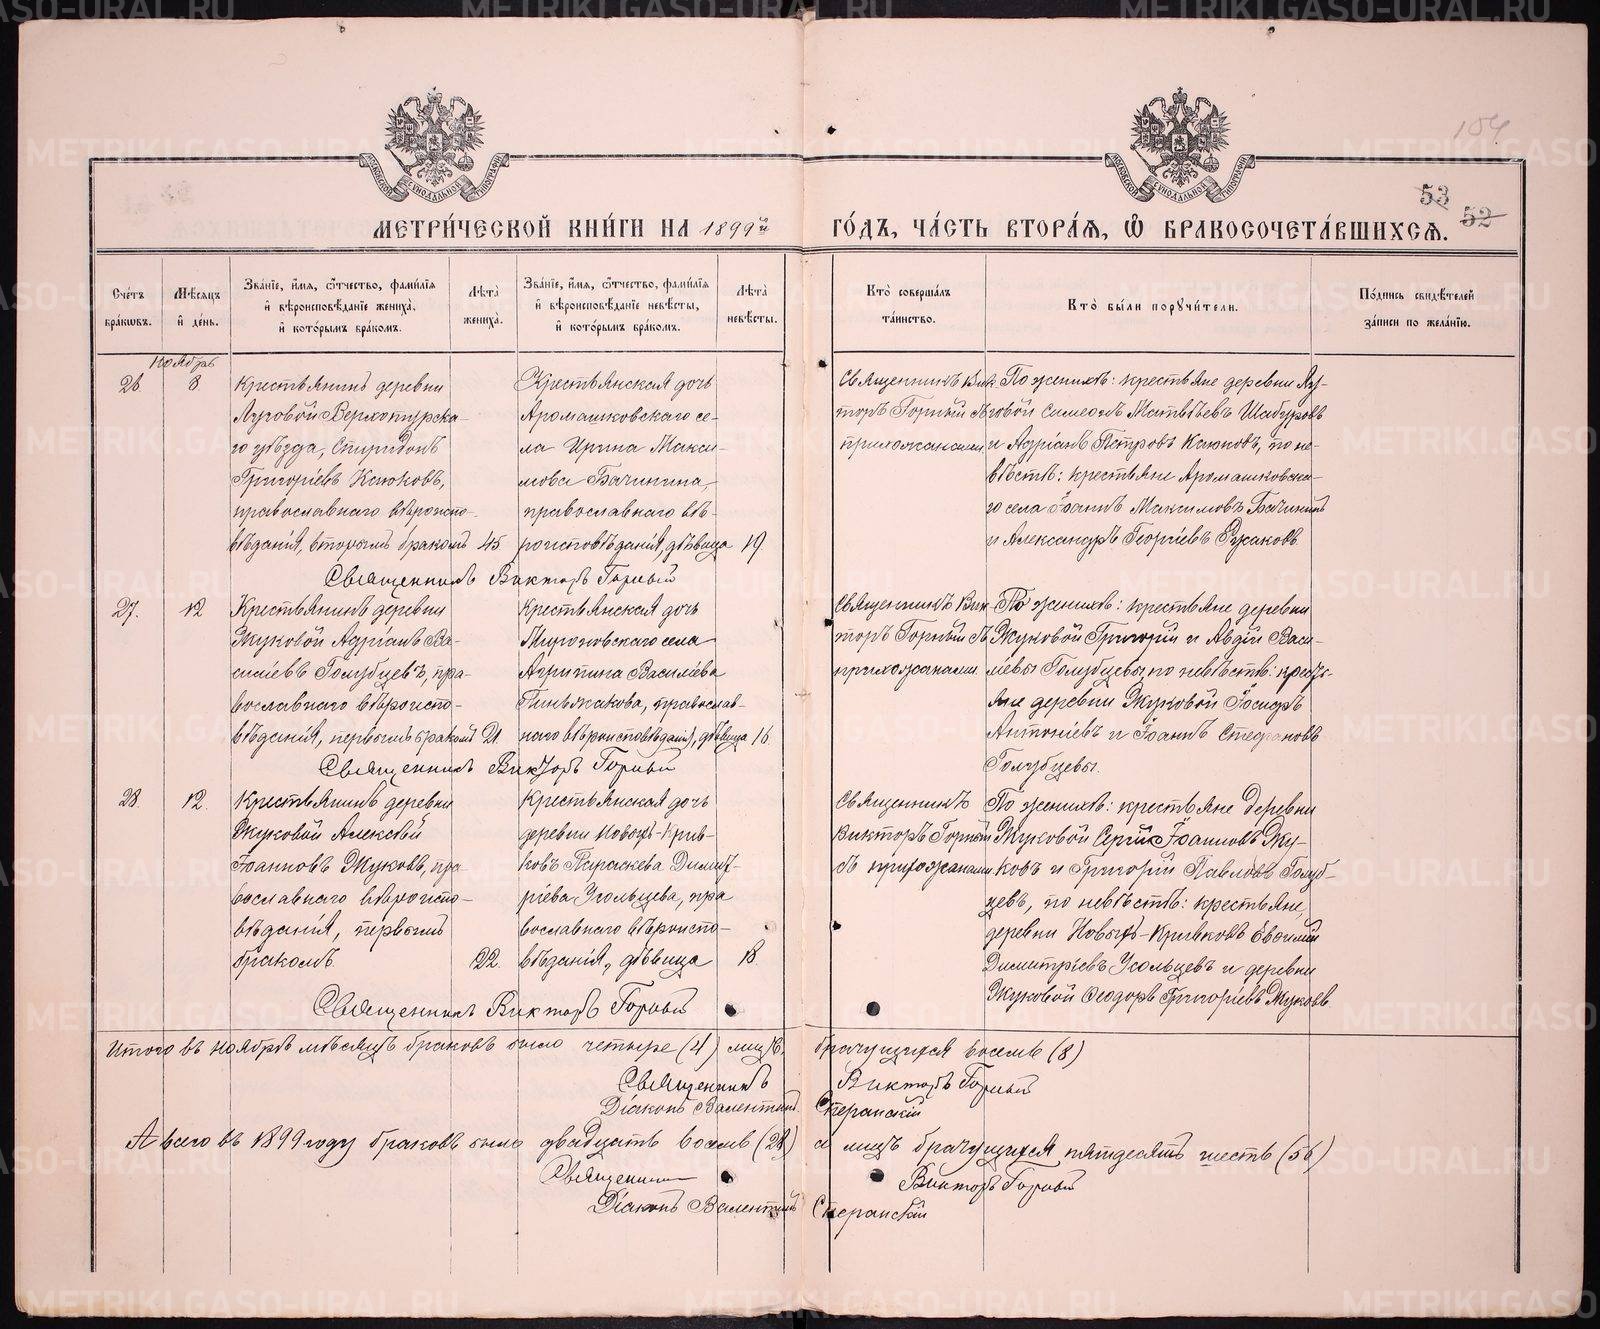 МЕТРИ́ЧЕСКОЙ КНИ́ГИ НА 1899й ГО́ДЪ, ЧА́СТЬ ВТОРА́Я, Ѡ БРАКОСОЧЕТА́ВШИХСѦ.
104
53
52
Сче́тъ бра́кѡвъ.
Мѣ́сяцъ и҆ де́нь.
Зва́нїе, и҆́мя, ѻ҆́тчество, фами́лїя и҆ вѣроисповѣ́данїе жениха̀, и҆ кото́рымъ бра́комъ.
Лѣта̀ жениха̀.
Зва́нїе, и҆́мя, ѻ҆́тчество, фами́лїя и҆ вѣроисповѣ́данїе невѣ́сты, и҆ кото́рымъ бра́комъ.
Лѣта̀ невѣ́сты.
Кто̀ соверша́лъ та́инство.
Кто̀ бы́ли порꙋчи́тели.
По́дпись свидѣ́телей за́писи по жела́нїю.
Ноябрь
26.
8
Крестьянинъ деревни
Луговой Верхотурска-
го уѣзда, Спиридонъ
Григоріевъ Клюковъ,
православнаго вѣроиспо-
вѣданія, вторымъ бракомъ
45
Крестьянская дочь
Аромашковскаго се-
ла Ирина Макси-
мова Бачинина,
православнаго вѣ-
роисповѣданія, дѣвица
19
Священникъ Вик-
торъ Горный съ
прихожанами
По женихѣ: крестьяне деревни Лу-
говой Симеонъ Матвѣевъ Шабуровъ
и Адріанъ Петровъ Клюковъ, по не-
вѣстѣ: крестьяне Аромашковска-
го села Іоаннъ Максимовъ Бачининъ
и Александръ Георгіевъ Русаковъ
Священникъ Викторъ Горный
27.
12
Крестьянинъ деревни
Жуковой Адріанъ Ва-
силіевъ Голубцевъ, пра-
вославнаго вѣроиспо-
вѣданія, первымъ бракомъ
21.
Крестьянская дочь
Мироновскаго села
Агрипина Василіева
Пинжакова, православ-
наго вѣроисповѣданія, дѣвица
16
Священникъ Вик-
торъ Горный съ
прихожанами.
По женихѣ: крестьяне деревни
Жуковой Григорій и Авдій Васи-
ліевы Голубцевы, по невѣстѣ: кресть-
яне деревни Жуковой Іосифъ
Антоніевъ и Іоаннъ Стефановъ
Голубцевы.
Священникъ Викторъ Горный
28.
12.
Крестьянинъ деревни
Жуковой Алексѣй
Іоанновъ Жуковъ, пра-
вославнаго вѣроиспо-
вѣданія, первымъ
бракомъ.
22.
Крестьянская дочь
деревни Новыхъ-Крив-
ковъ Параскева Димит-
ріева Усольцева, пра
вославнаго вѣроиспо-
вѣданія, дѣвица
18.
Священникъ
Викторъ Горный
съ прихожанами
По женихѣ: крестьяне деревни
Жуковой Сергій Іоанновъ Жу-
ковъ и Григорій Павловъ Голуб-
цевъ, по невѣстѣ: крестьяне,
деревни Новыхъ-Кривковъ Евфимій
Димитріевъ Усольцевъ и деревни
Жуковой Ѳеодоръ Григоріевъ Жуковъ
Священникъ Викторъ Горный
Итого въ ноябрѣ мѣсяцѣ браковъ было четыре (4) лицъ брачущихся восемь (8)
Священникъ Викторъ Горный
Діаконъ Валентинъ Сперанскій
А всего въ 1899 году браковъ было двадцать восемь (28) а лицъ брачущихся пятьдесятъ шесть (56)
Священникъ Викторъ Горный
Діаконъ Валентинъ Сперанскій
METRIKI.GASO-URAL.RU